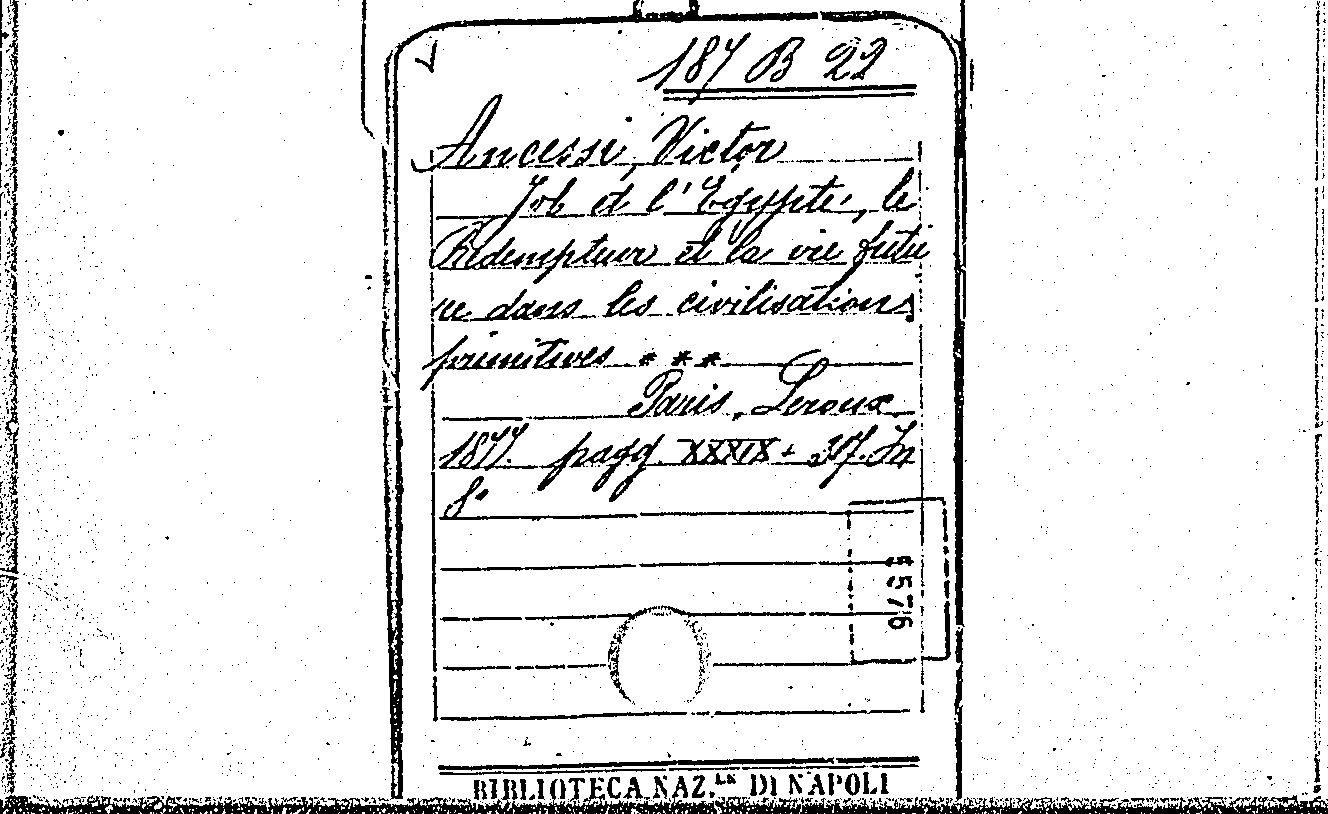 187 B 22
Ancessi, Victor
Job et l'Egypte, le
Rédempteur et la vie futu
re dans les civilisations
primitives ***
Paris, Leroux
1877. pagg. XXXIX + 317. In
8°
5576
BIBLIOTECA NAZ.LE DI NAPOLI